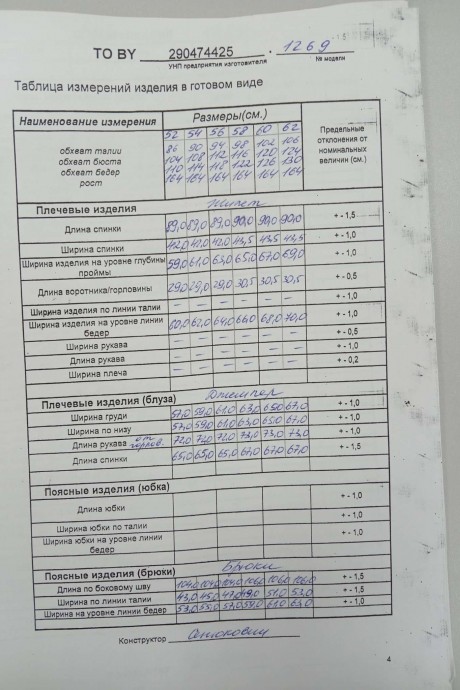 ТО BY 290474425 . 1269
УНП предприятия изготовителя № модели
Таблица измерений изделия в готовом виде
Наименование измерения Размеры(см.) Предельные отклонения от номинальных величин (см.)
52 54 56 58 60 62
обхват талии 86 90 94 98 102 106
обхват бюста 104 108 112 116 120 124
обхват бедер 110 114 118 122 126 130
рост 164 164 164 164 164 164
Плечевые изделия Жилет
Длина спинки 89,0 89,0 89,0 90,0 90,0 90,0 +- 1,5
Ширина спинки 42,0 42,0 42,0 43,5 43,5 43,5 +- 1,0
Ширина изделия на уровне глубины проймы 59,0 61,0 63,0 65,0 67,0 69,0 +- 1,0
Длина воротника/горловины 29,0 29,0 29,0 30,5 30,5 30,5 +- 0,5
Ширина изделия по линии талии — — — — — — +- 1,0
Ширина изделия на уровне линии бедер 60,0 62,0 64,0 66,0 68,0 70,0 +- 1,0
Ширина рукава — — — — — — +- 0,5
Длина рукава — — — — — — +- 1,0
Ширина плеча — — — — — — +- 0,2
Плечевые изделия (блуза) Джемпер
Ширина груди 57,0 59,0 61,0 63,0 65,0 67,0 +- 1,0
Ширина по низу 57,0 59,0 61,0 63,0 65,0 67,0 +- 1,0
Длина рукава от горлов. 72,0 72,0 72,0 73,0 73,0 73,0 +- 1,0
Длина спинки 65,0 65,0 65,0 67,0 67,0 67,0 +- 1,5
Поясные изделия (юбка)
Длина юбки +- 1,0
Ширина юбки по талии +- 1,0
Ширина юбки на уровне линии бедер +- 1,0
Поясные изделия (брюки) Брюки
Длина по боковому шву 104,0 104,0 104,0 106,0 106,0 106,0 +- 1,5
Ширина по линии талии 43,0 45,0 47,0 49,0 51,0 53,0 +- 1,0
Ширина на уровне линии бедер 53,0 55,0 57,0 59,0 61,0 63,0 +- 1,0
Конструктор
4